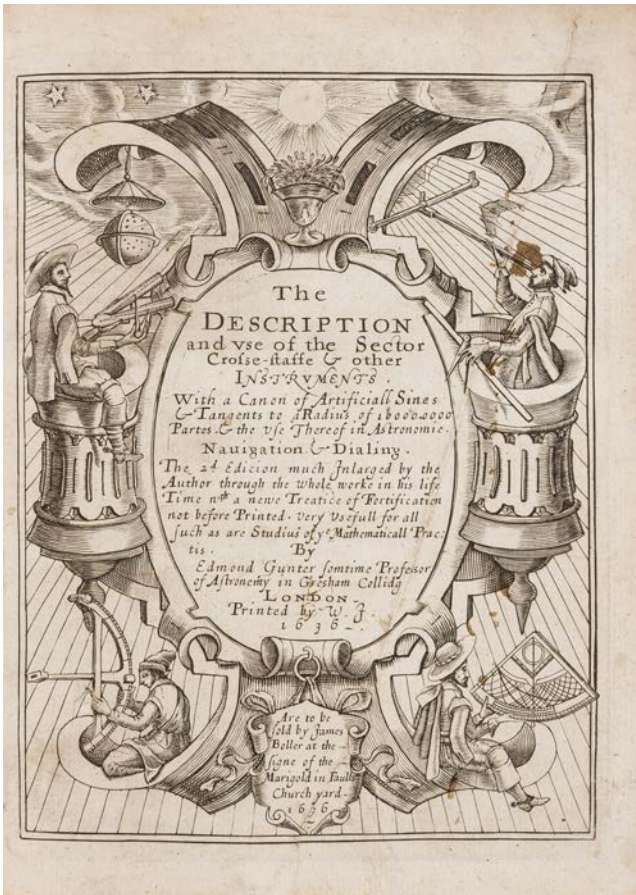 The
DESCRIPTION
and vse of the Sector
Crosse-staffe & other
INSTRVMENTS.
With a Canon of Artificiall Sines
& Tangents to a Radius of
Partes. & the vse Thereof in Astronomie.
Nauigation & Dialing.
The 2d Edicion much Inlarged by the
Author through the whole worke in his life
Time wth a newe Treatice of Fortification
not before Printed. very Vsefull for all
such as are Studius of ye Mathematicall Prac:
tis. By
Edmond Gunter somtime Profesor
of Astronemy in Gresham Collidg
LONDON
Printed by W. J
1636
Are to be
sold by James
Boller at the
signe of the
Marigold in Paules
Church yard.
1636